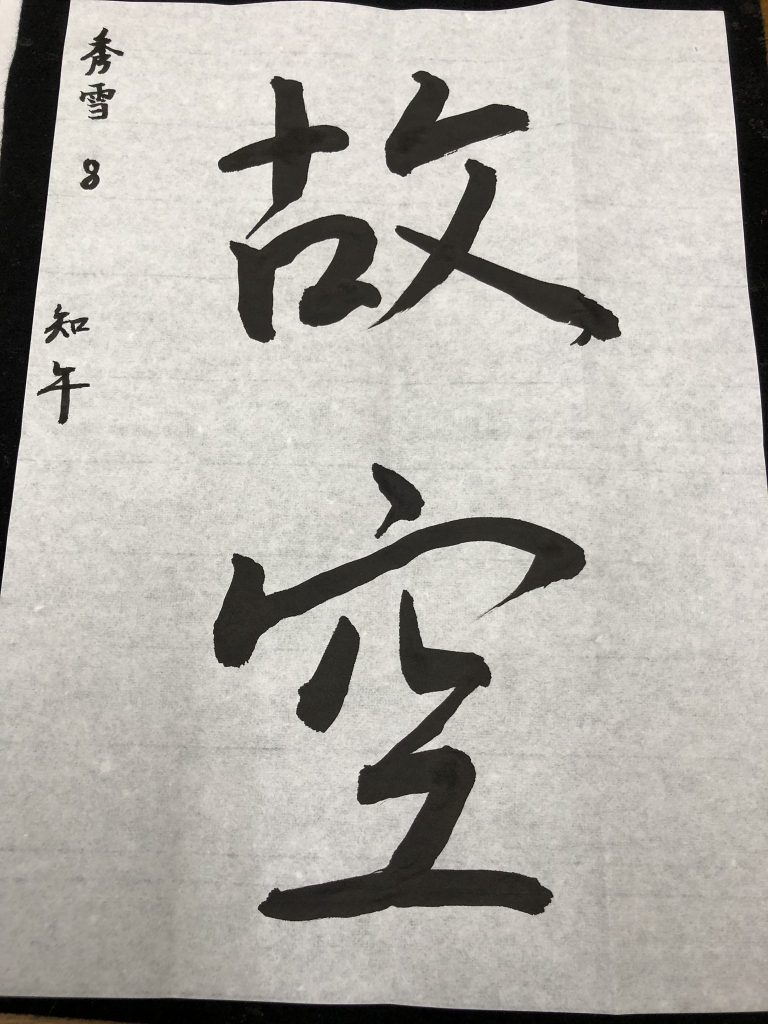 故空
秀雪 8 知午